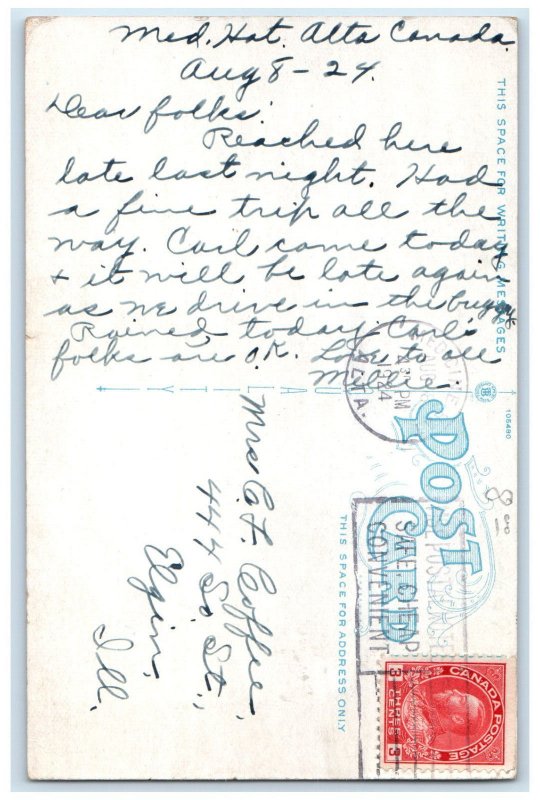 Med. Hat. Alta Canada.
Aug 8-24.
Dear folks:
Reached here
late last night. Had
a fine trip all the
way. Carl came today
& it will be late again
as we drive in the buggy.
Rained today. Carl's
folks are O.K. Love to all
Millie.
THIS SPACE FOR WRITING MESSAGES
PM
1924
ALTA.
105480
POST
CARD
8
SAFE, CHEAP
CONVENIENT
THIS SPACE FOR ADDRESS ONLY
Mrs. C.F. Coffie,
444 So. St.,
Elgin,
Ill.
CANADA POSTAGE
3 THREE 3
CENTS